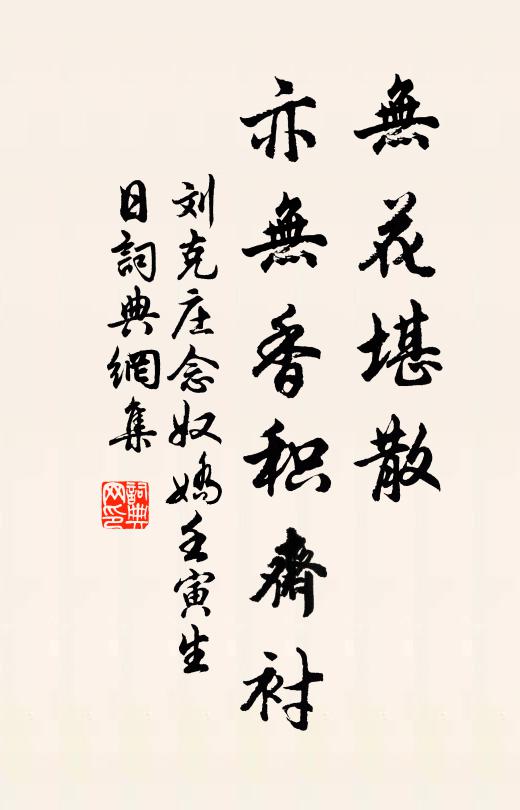 無花堪散
亦無香积齋衬
刘克庄念奴嬌壬寅生
日詞典網集
詞典
网印